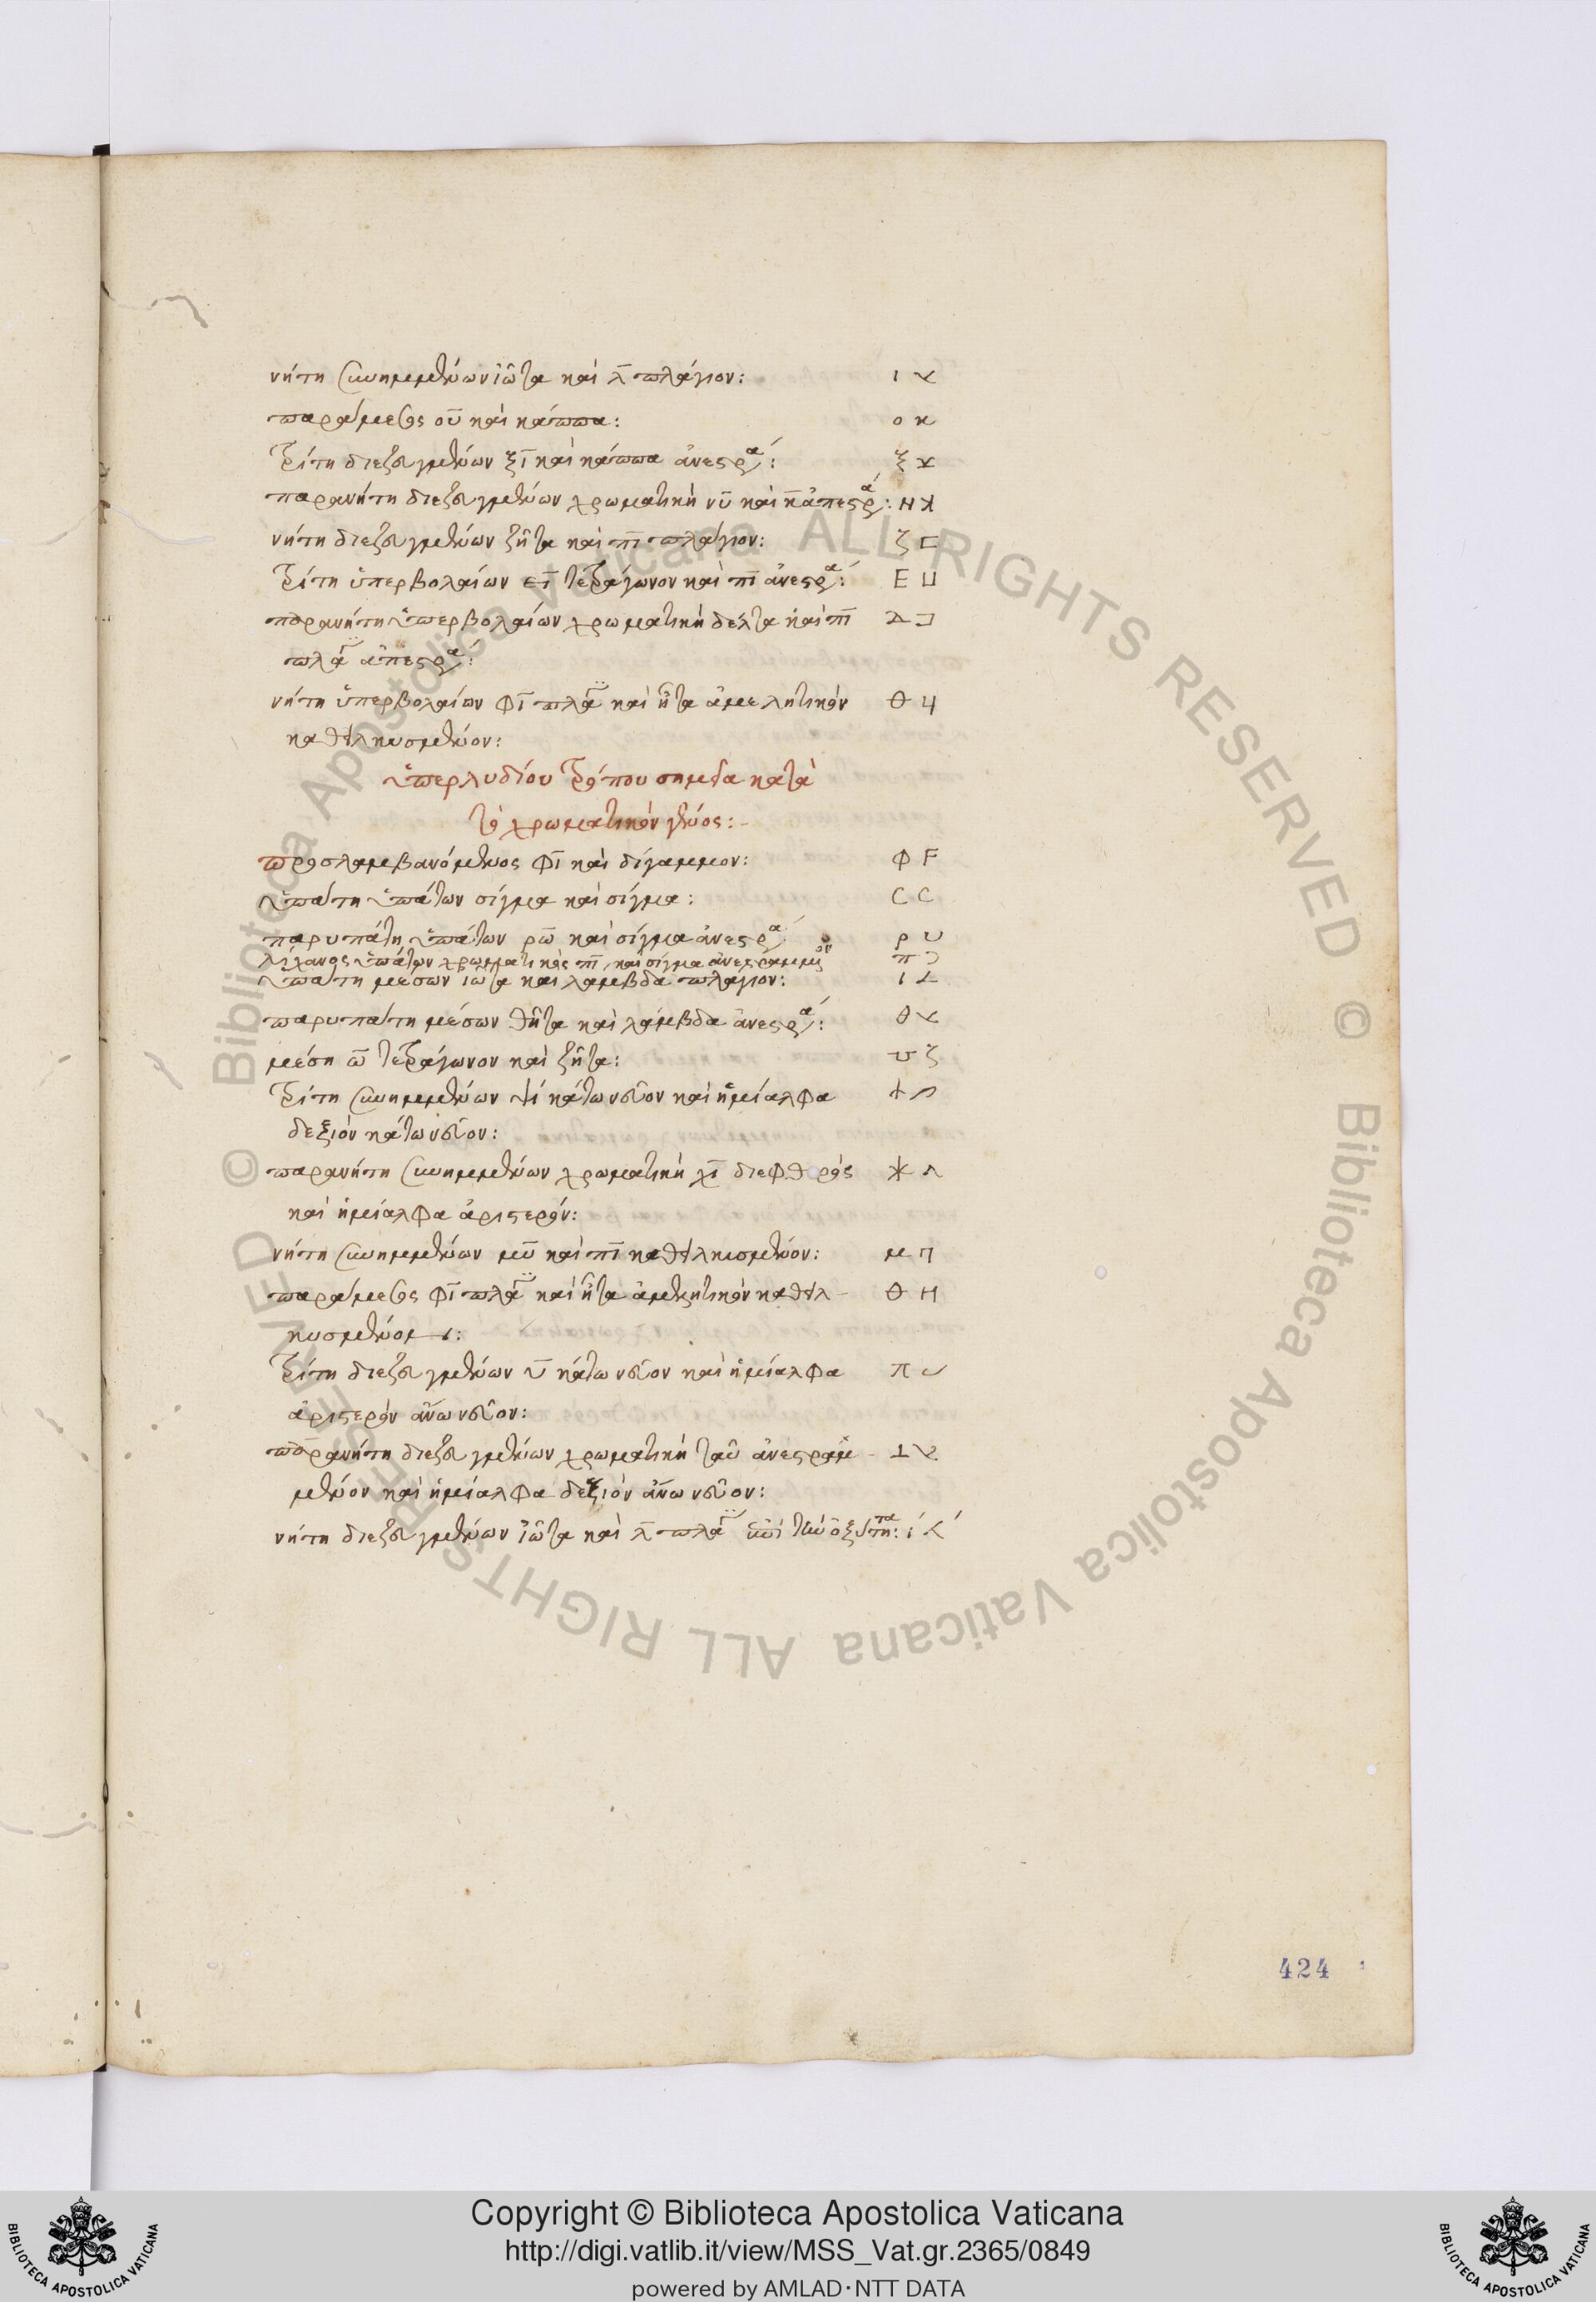 νήτη συνημμένων ἰῶτα καὶ λ̄ πλάγιον: ι <
παράμεσος οῡ καὶ κάππα: ο κ
τρίτη διεζευγμένων ξῑ καὶ κάππα ἀνεστρα´: ξ
παρανήτη διεζευγμένων χρωματικὴ νῡ καὶ κ̄ ἀπεστρα´: Ν
νήτη διεζευγμένων ζῆτα καὶ πῑ πλάγιον: ζ ⊏
τρίτη ὑπερβολαίων εῑ τετράγωνον καὶ πῑ ἀνεστρα´: Ε ⊔
παρανήτη ὑπερβολαίων χρωματικὴ δέλτα καὶ πῑ Δ ⊐
πλά ἀπεστρα´:
νήτη ὑπερβολαίων φῑ πλά καὶ ἦτα ἀμελητικὸν Θ
καθειλκυσμένον:
ὑπερλυδίου τρόπου σημεῖα κατὰ
τὸ χρωματικὸν γένος:-
προσλαμβανόμενος φῑ καὶ δίγαμμον: φ F
ὑπάτη ὑπάτων σίγμα καὶ σίγμα: C C
παρυπάτη ὑπάτων ρω̄ καὶ σίγμα ἀνεστρα´ ρ υ
λίχανος ὑπάτων χρωματικὸς πῑ, καὶ σίγμα ἀνεστραμμένον π Ͻ
ὑπάτη μέσων ἰῶτα καὶ λάμβδα πλάγιον: ι <
παρυπάτη μέσων θῆτα καὶ λάμβδα ἀνεστρα´: θ
μέση ω̄ τετράγωνον καὶ ζῆτα: ζ
τρίτη συνημμένων ψὶ κάτω νεῦον καὶ ἡμίαλφα
δεξιὸν κάτω νεῦον:
παρανήτη συνημμένων χρωματικὴ χῑ διεφθορὸς
καὶ ἡμίαλφα ἀριστερόν:
νήτη συνημμένων μῡ καὶ πῑ καθειλκυσμένον: μ
παράμεσος φῑ πλά καὶ ἦτα ἀμελητικὸν καθειλ- Θ Η
κυσμένον:
τρίτη διεζευγμένων ῡ κάτω νεῦον καὶ ἡμίαλφα
ἀριστερὸν ἄνω νεῦον:
παρανήτη διεζευγμένων χρωματικὴ ταῦ ἀνεστραμ- ⊥
μένον καὶ ἡμίαλφα δεξιὸν ἄνω νεῦον:
νήτη διεζευγμένων ἰῶτα καὶ λ̄ πλά ἐπὶ τὴν ὀξύτητα: ι´ <´
424
Copyright © Biblioteca Apostolica Vaticana
http://digi.vatlib.it/view/MSS_Vat.gr.2365/0849
powered by AMLAD·NTT DATA
BIBLIOTECA APOSTOLICA VATICANA
BIBLIOTECA APOSTOLICA VATICANA
© Biblioteca Apostolica Vaticana ALL RIGHTS RESERVED © Biblioteca Apostolica Vaticana ALL RIGHTS RESERVED